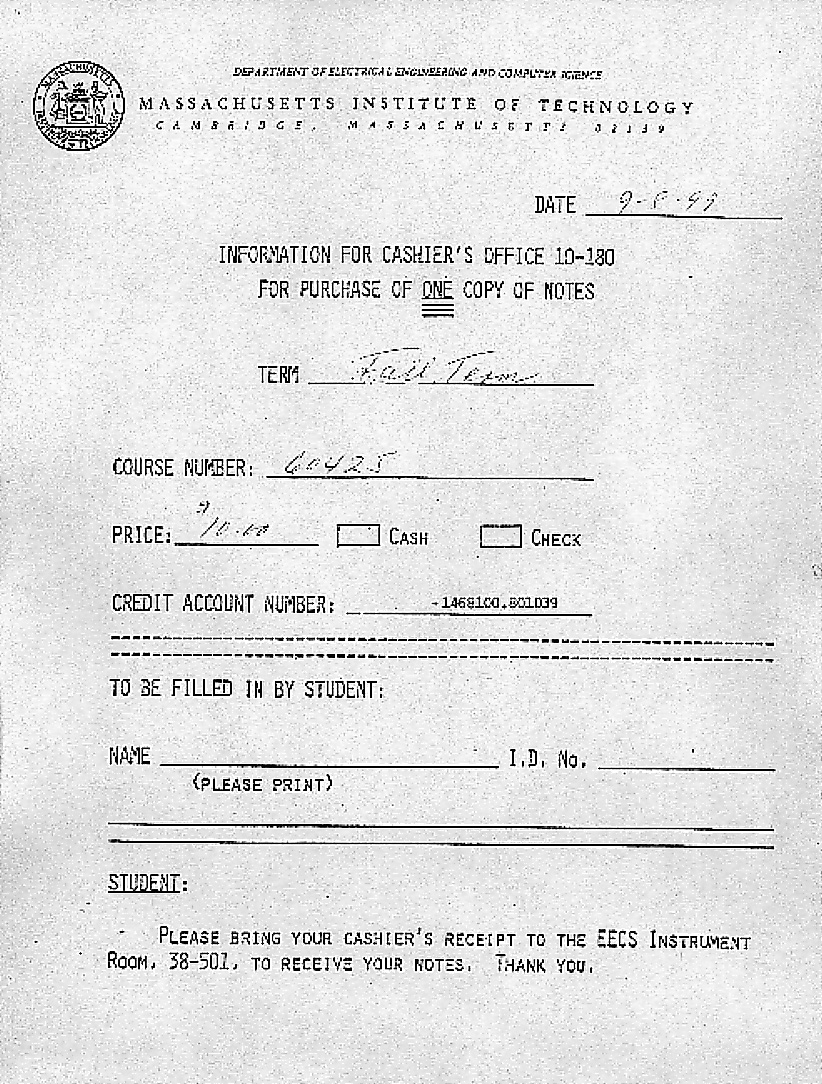 DEPARTMENT OF ELECTRICAL ENGINEERING AND COMPUTER SCIENCE
MASSACHUSETTS INSTITUTE OF TECHNOLOGY
CAMBRIDGE, MASSACHUSETTS 02139
DATE 9-8-99
INFORMATION FOR CASHIER'S OFFICE 10-180
FOR PURCHASE OF ONE COPY OF NOTES
TERM Fall Term
COURSE NUMBER: 6042S
PRICE: $10.00 CASH CHECK
CREDIT ACCOUNT NUMBER: -1468100.801039
TO BE FILLED IN BY STUDENT:
NAME I.D. No.
(PLEASE PRINT)
STUDENT:
PLEASE BRING YOUR CASHIER'S RECEIPT TO THE EECS INSTRUMENT
ROOM, 38-501, TO RECEIVE YOUR NOTES. THANK YOU.